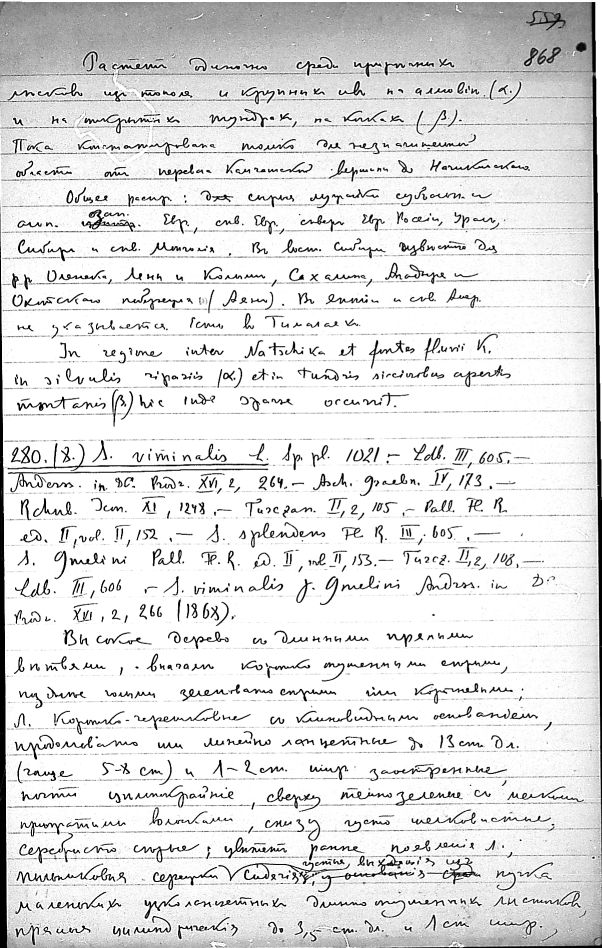 559
868
Растетъ одиночно среди приречныхъ
лесковъ изъ тополя и крупныхъ ивъ на аллювіи (α.)
и на открытыхъ тундрахъ, на кочкахъ (β).
Пока констатирована только для незначительной
области отъ перевала Камчатской вершины до Начикинскаго
Общее распр:
зап. Евр., сѣв. Евр., северъ Евр. Россіи, Уралъ,
Сибирь и сѣв. Монголія. Въ вост. Сибири извѣстно для
рр. Оленека, Лены и Колымы, Сахалина, Анадыря и
Охотскаго побережья (Аянъ). Въ Японіи и сѣв. Амер.
не указывается. Есть въ Гималаяхъ.
In regione inter Natschika et fontes fluvii K.
in silvulis ripariis (α) et in tundris siccioribus apertis
montanis (β) hic inde sparse occurrit.
280. (8.) S. viminalis L. Sp. pl. 1021. – Ldb. III, 605. –
Anderss. in DC. Prodr. XVI, 2, 264. – Asch. Graebn. IV, 173. –
Rchnb. Icon. XI, 1248. – Turczan. II, 2, 105. – Pall. Fl. R.
ed. II, vol. II, 152. – S. splendens Fl. R. III, 605. –
S. Gmelini Pall. Fl. R. ed. II, vol II, 153. – Turcz. II, 2, 108. –
Ldb. III, 606 – S. viminalis γ. Gmelini Anderss. in DC
Prodr. XVI, 2, 266 (1868).
Высокое дерево съ длинными прямыми
вѣтвями, вначалѣ коротко опушенными сѣрыми,
позднѣе голыми зеленовато сѣрыми или коричневыми;
Л. коротко-черешковые съ клиновиднымъ основаніемъ,
продолговато или линейно ланцетные до 13 cm. дл.
(чаще 5-8 cm) и 1-2 cm. шир. заостренные,
почти цѣльнокрайніе, сверху темнозеленые съ мелкими
прижатыми волосками, снизу густо шелковистые,
серебристо сѣрые; цвѣтетъ ранѣе появленія л.,
густыя, выходящія изъ
пыльниковыя сережки сидячія, у основанія пучка
маленькихъ узколанцетныхъ длинно опушенныхъ листиковъ,
прямыя цилиндрическія до 3,5 cm. дл. и 1 cm шир.,